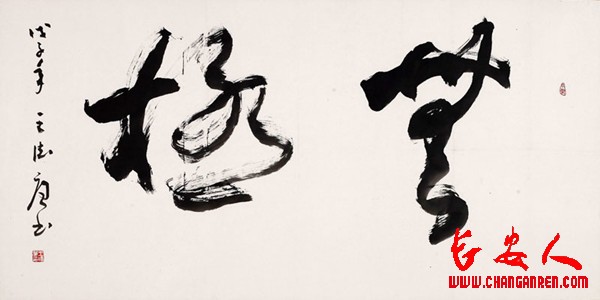 無極
戊子年 王德 書
长安人
WWW.CHANGANREN.COM